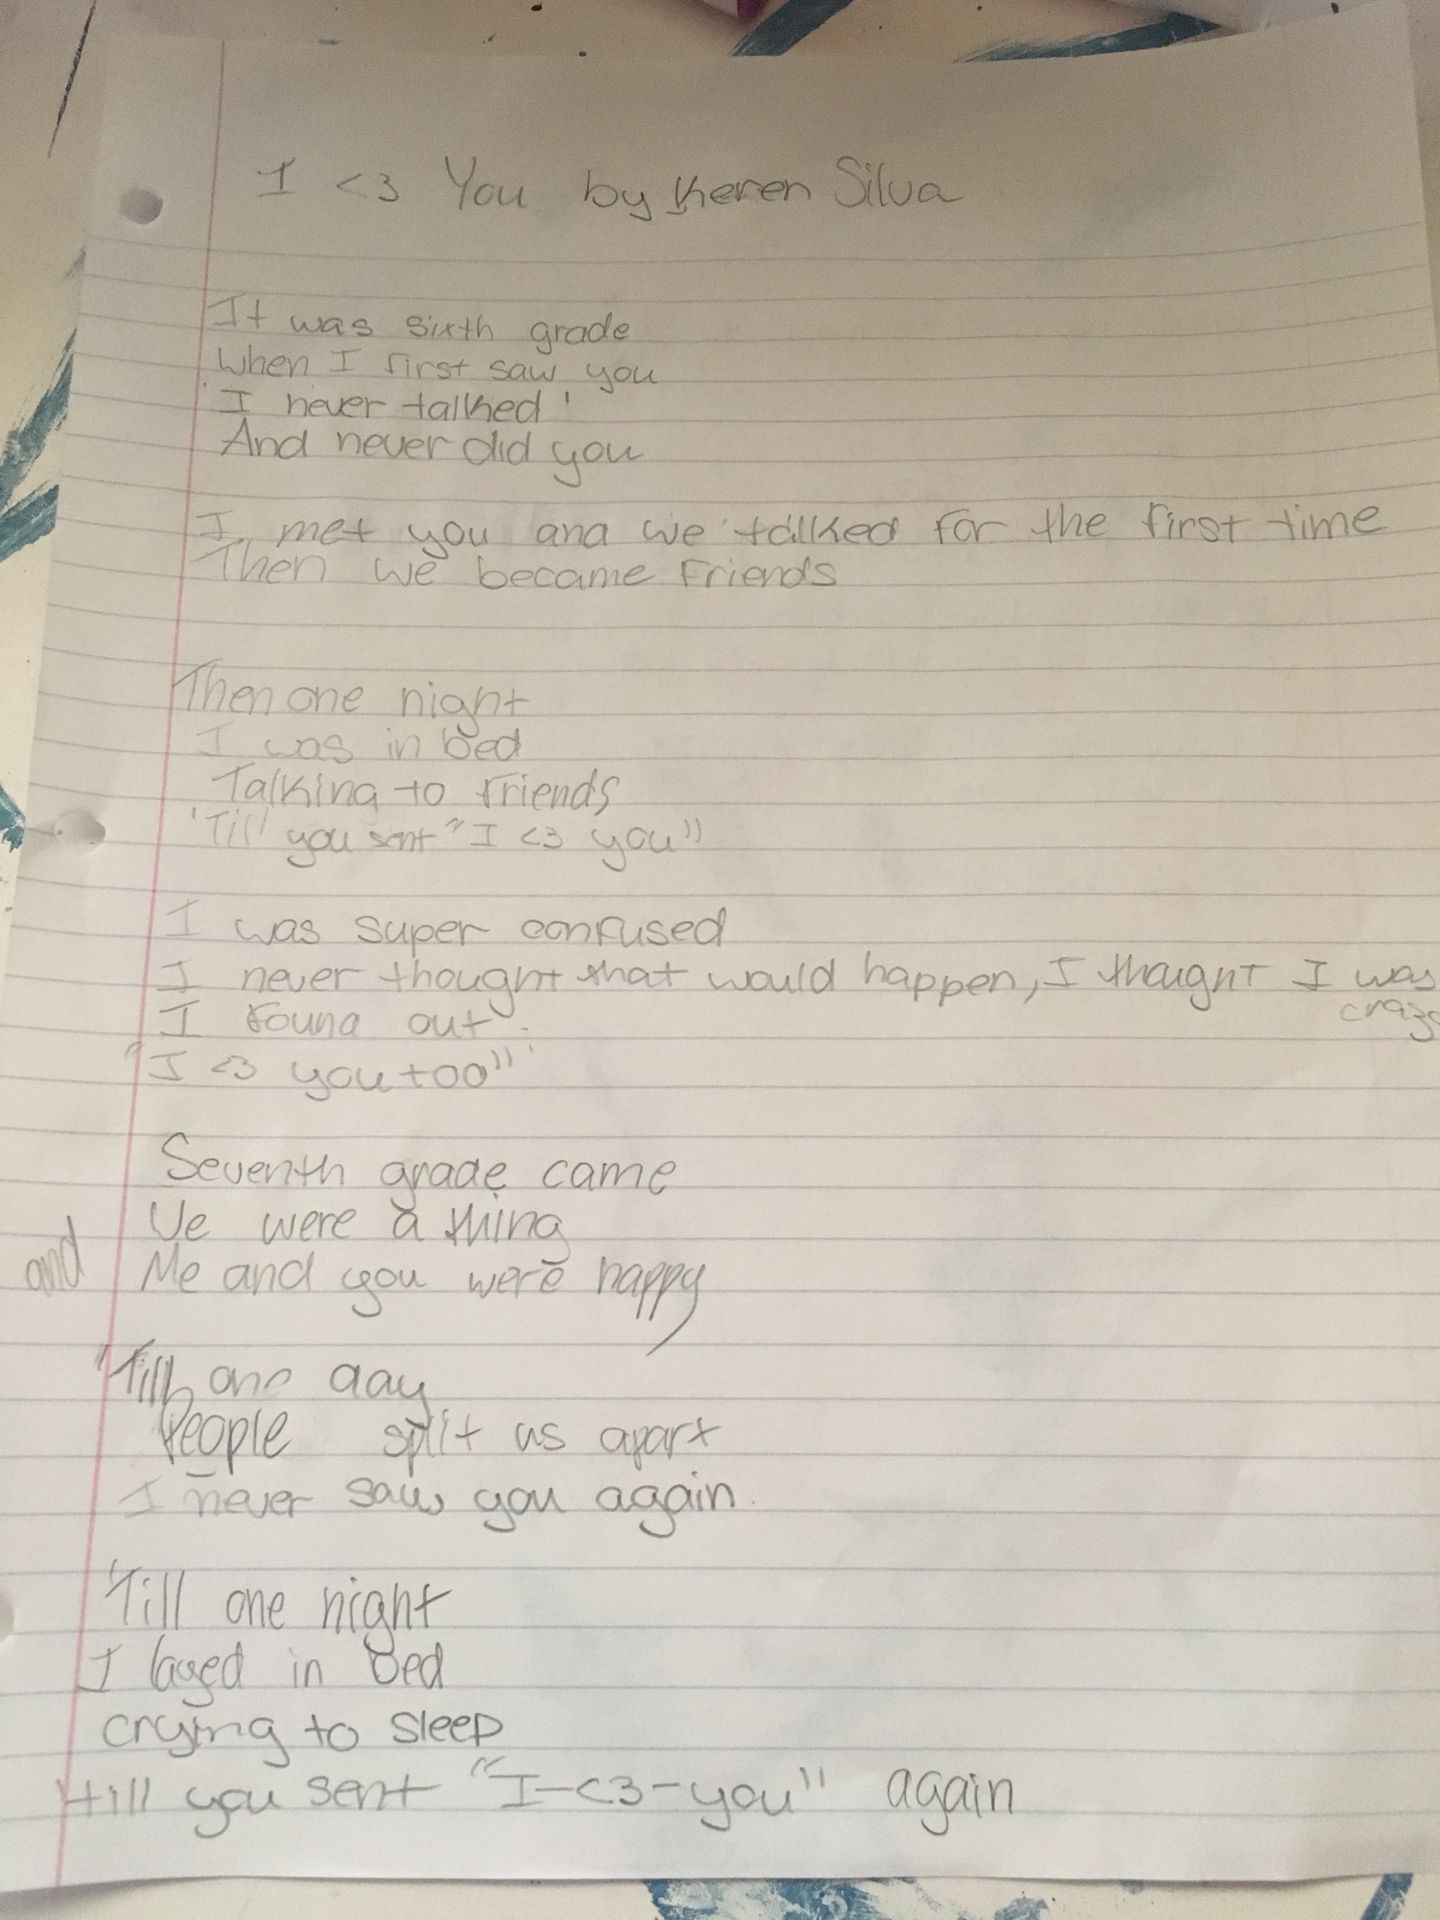 I <3 You by Keren Silva
It was sixth grade
When I first saw you
I never talked
And never did you
I met you and we talked for the first time
Then we became Friends
Then one night
I was in bed
Talking to Friends
'Till you sent "I <3 you"
I was super confused
I never thought that would happen, I thought I was
crazy
I found out
"I <3 you too"
Seventh grade came
We were a thing
and Me and you were happy
'Till one day
People split us apart
I never saw you again.
'Till one night
I layed in bed
crying to sleep
till you sent "I-<3-you" again